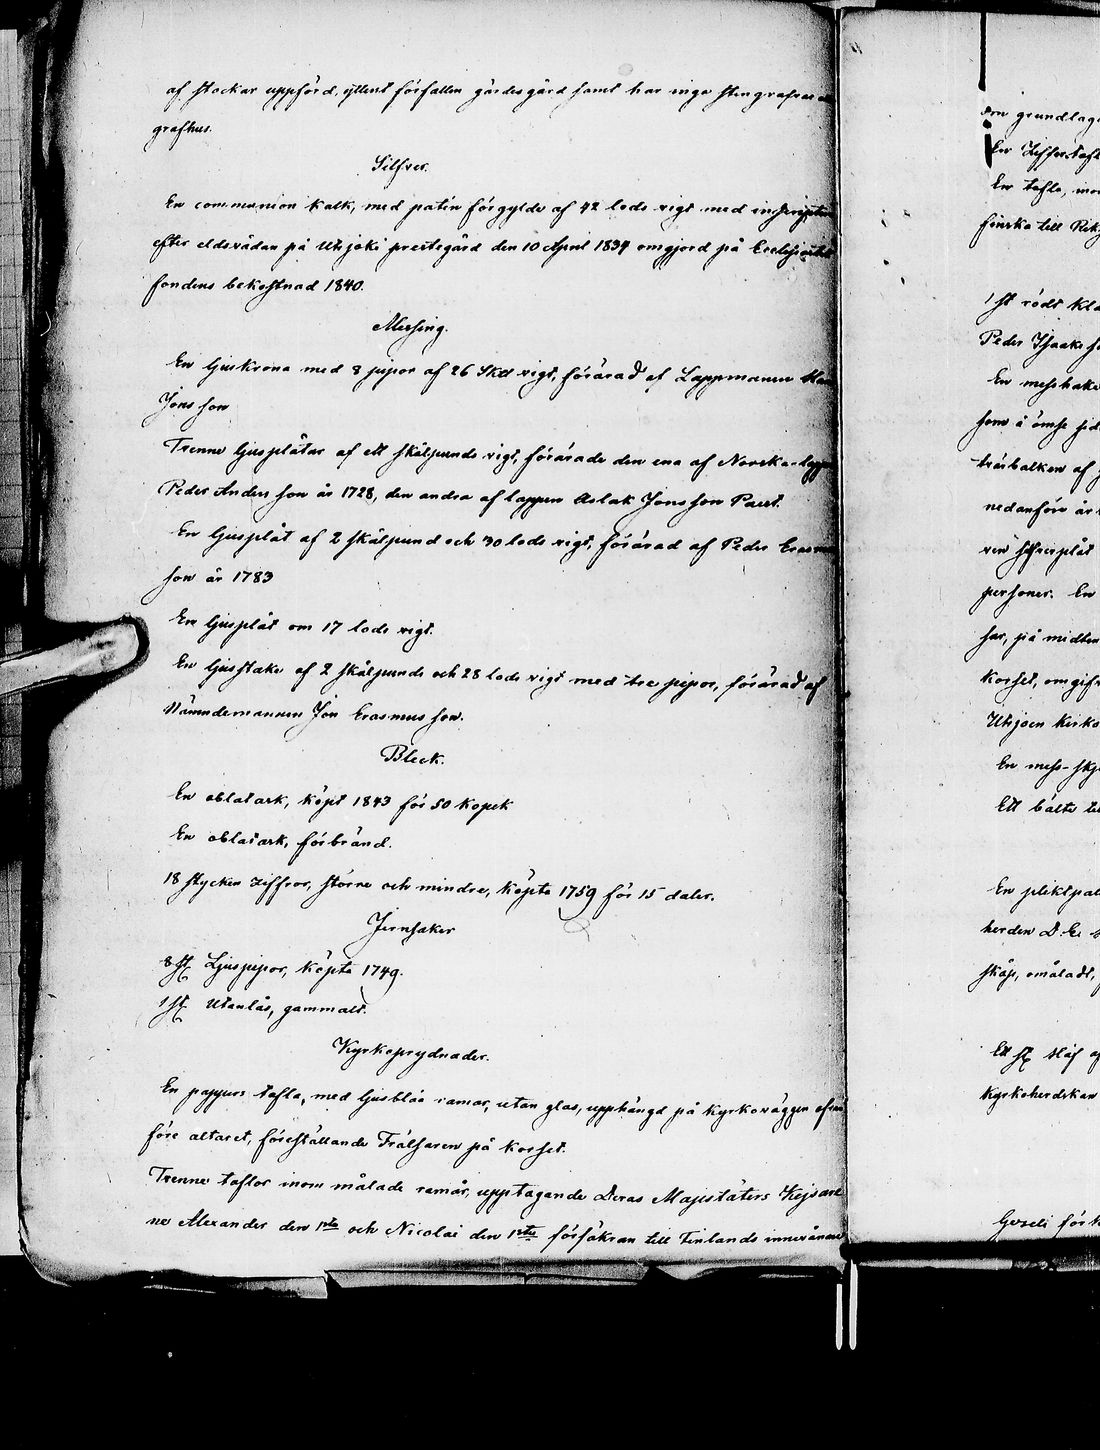 af stockar uppförd, ytterst förfallen gärdesgård samt har inga stengrafvar
grafhus.
Silfver.
En communion kalk, med patén förgylde af 42 lods vigt med inscription
efter eldsvådan på Utsjoki prestegård den 10 April 1839 omgjord på Ecclesiastik
fondens bekostnad 1840.
Messing.
En ljuskrona med 8 pipor af 26 Skd vigt, förärad af Lappmannen
Jonsson
Trenne ljusplåtar af ett skålpunds vigt, förärade den ena af Norska lappen
Peder Andersson år 1728, den andra af lappen Aslak Jonsson Paut.
En ljusplåt af 2 skålpund och 30 lods vigt, förärad af Peder Erasmus
son år 1783
En ljusplåt om 17 lods vigt.
En ljusstake af 2 skålpunds och 28 lods vigt med tre pipor, förärad af
Nämndemannen Jon Erasmusson.
Bleck.
En oblatask, köpt 1843 för 50 kopek
En oblatask, förbränd.
18 stycken Ziffror, större och mindre, köpta 1759 för 15 daler.
Jernsaker
8 st Ljuspipor, köpta 1749.
1 st. Utanlås, gammalt.
Kyrkoprydnader.
En pappers tafla, med ljusblåa ramar, utan glas, upphängd på kyrkoväggen ofvan
före altaret, föreställande Frälsaren på korset.
Trenne taflor inom målade ramar, upptagande Deras Majestäters Kejsar
ne Alexander den 1sta och Nicolai den 1sta försäkran till Finlands innevånare
grundlag
En Zifferstafl
En tafla,
finska till
1 st rödt
Peder Isaaks
En messhake
som å ömse sid
tvärbalken af
nedanföre är
personer. En
har, på midten
korset, omgifv
Utsjoen Kirko
En mess-
Ett bälte
En pliktpal
herden
skåp, omåladt,
Ett st
Kyrkoherdskan